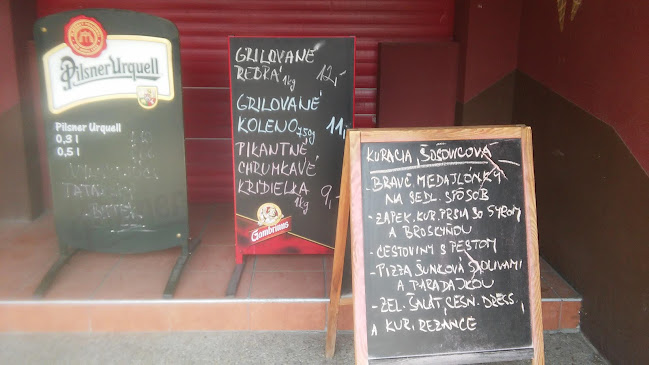 Pilsner Urquell
Pilsner Urquell
0,3 l
0,5 l
GRILOVANÉ
REBRÁ 1kg 12,-
GRILOVANÉ
KOLENO 750g 11,-
PIKANTNÉ
CHRUMKAVÉ
KRÍDIELKA 9,-
1kg
Gambrinus
KURACIA, ŠOŠOVICOVÁ
- BRAVČ. MEDAJLÓNKY
NA SEDL. SPÔSOB
- ZAPEK. KUR. PRSIA SO SYROM
A BROSKYŇOU
- CESTOVINY S PESTOM
- PIZZA ŠUNKOVÁ S OLIVAMI
A PARADAJKOU
- ZEL. ŠALÁT, CESN. DRESS.
A KUR. REZANCE